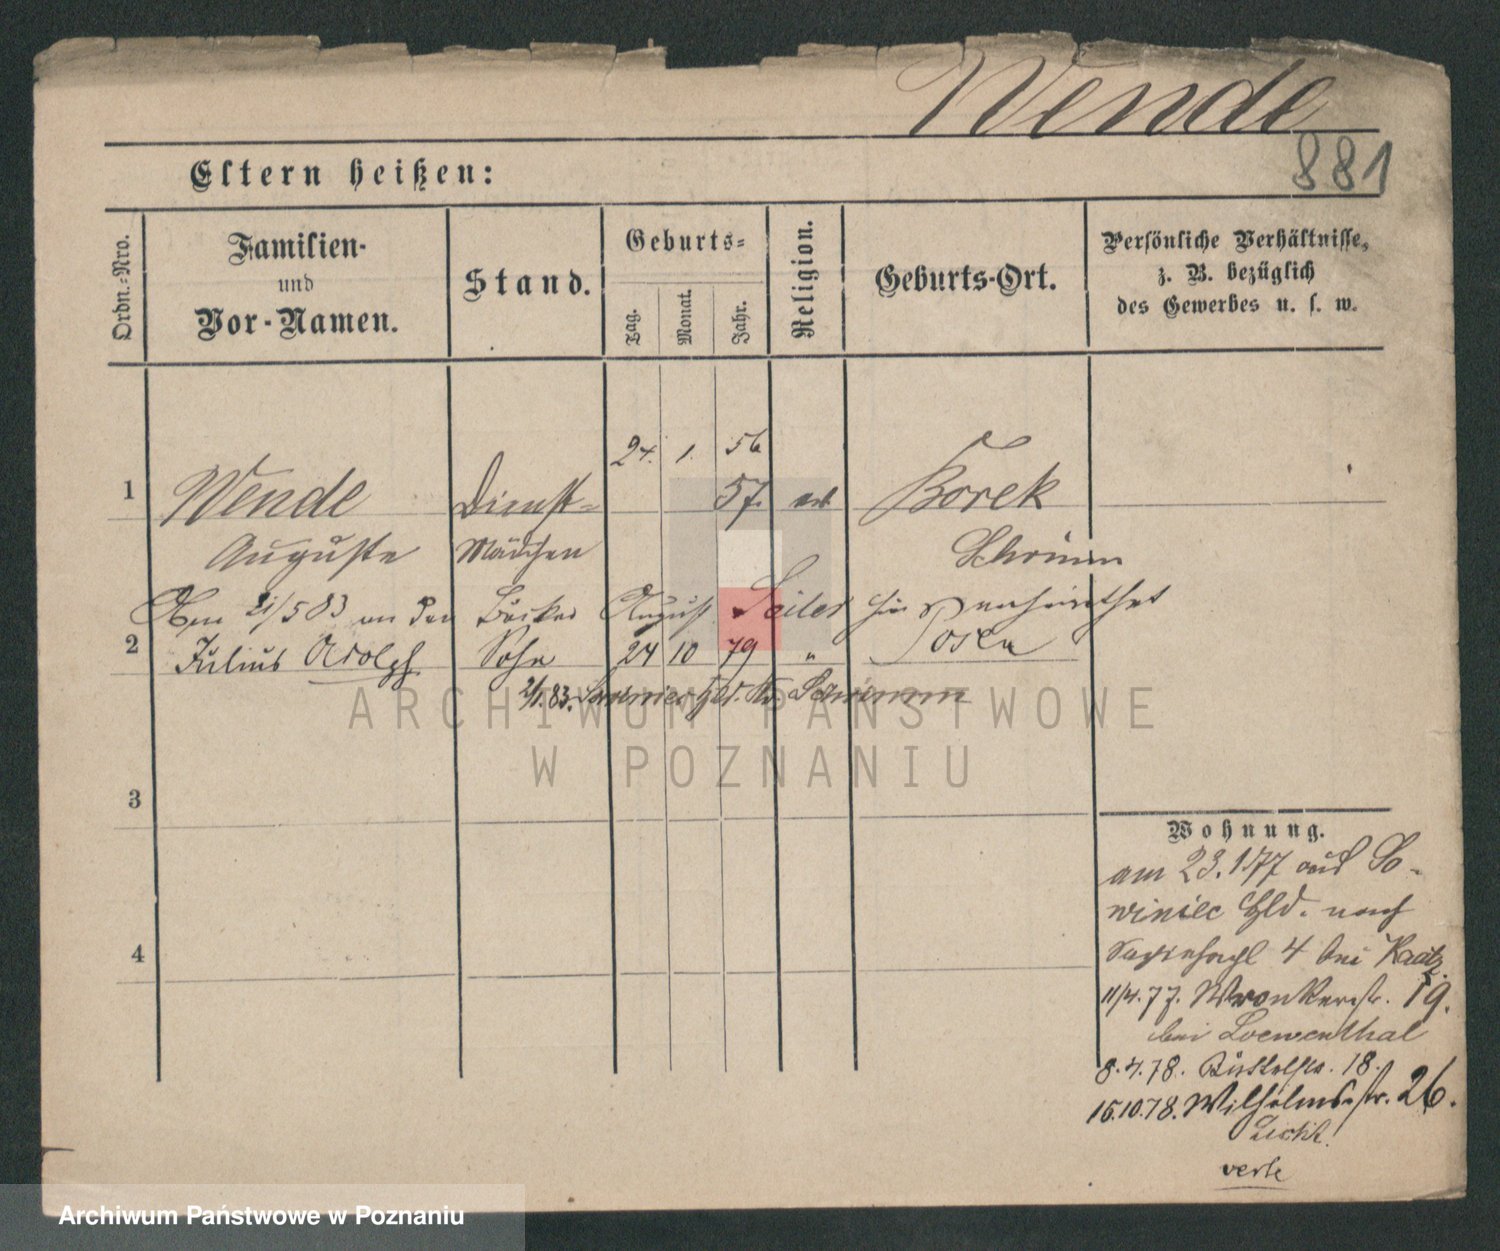 Wende
881
Eltern heißen:
Ordn.-Nro.
Familien-
und
Vor-Namen.
Stand.
Geburts-
Tag.
Monat.
Jahr.
Religion.
Geburts-Ort.
Persönliche Verhältnisse,
z. B. bezüglich
des Gewerbes u. s. w.
24. 1. 56
1 Wende Dienst- 57. Borek
Auguste Mädchen Schrimm
21/5 83 an den Bäcker August Seiler hier verheirathet
2 Julius Adolph Sohn 24 10 79 " Posen
83. Sowiniec Hld. Kr. Schrimm
ARCHIWUM PAŃSTWOWE
W POZNANIU
3
4
Wohnung.
am 23.1.77 aus So-
winiec Hld. nach
Sapiehapl 4 bei Kaatz
11/4.77. Wronkerstr. 19.
bei Loewenthal
8.4.78. 18.
15.10.78. Wilhelmsstr. 26.
verh
Archiwum Państwowe w Poznaniu